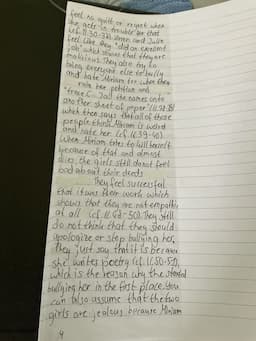 feel no guilt or regret when
she gets in trouble for that
(cf. ll. 30-37). Karen and Julie
feel like they "did an excellent
job" which shows that they are
malicious. They also try to
bring everyone else to bully
and hate Miriam for when they
rule her petition and
"trace [...] all the names onto
another sheet of paper" (ll. 37-38)
which then says that all of those
people think Miriam is weird
and hate her (cf. ll. 39-40).
When Miriam tries to kill herself
because of that and almost
dies the girls still do not feel
bad about their deeds
They feel successful
that it was their work which
shows that they are not empathic
at all (cf. ll. 50). They still
do not think that they should
apologize or stop bullying her.
They just say that it is because
she writes poetry (cf. ll. 50-51),
which is the reason why the started
bullying her in the first place. You
can also assume that the two
girls are jealous because Miriam
4